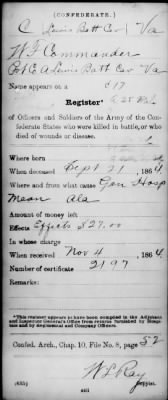 (CONFEDERATE.)
C Lewis Batt Cav Va
W F Commander
Pvt Co A Lewis Batt Cav Va
Name appears on a
Register*
of Officers and Soldiers of the Army of the Confederate States who were killed in battle, or who died of wounds or disease.
Where born
When deceased Sept 21, 1864
Where and from what cause Gen Hosp
Ala
Amount of money left
Effects Effects $27.00
In whose charge
When received Nov 4, 1864
Number of certificate 2197
Remarks:
*This register appears to have been compiled in the Adjutant and Inspector General's Office from returns furnished by Hospitals and by Regimental and Company Officers.
Confed. Arch., Chap. 10, File No. 8, page 52
(635)
W L Ray